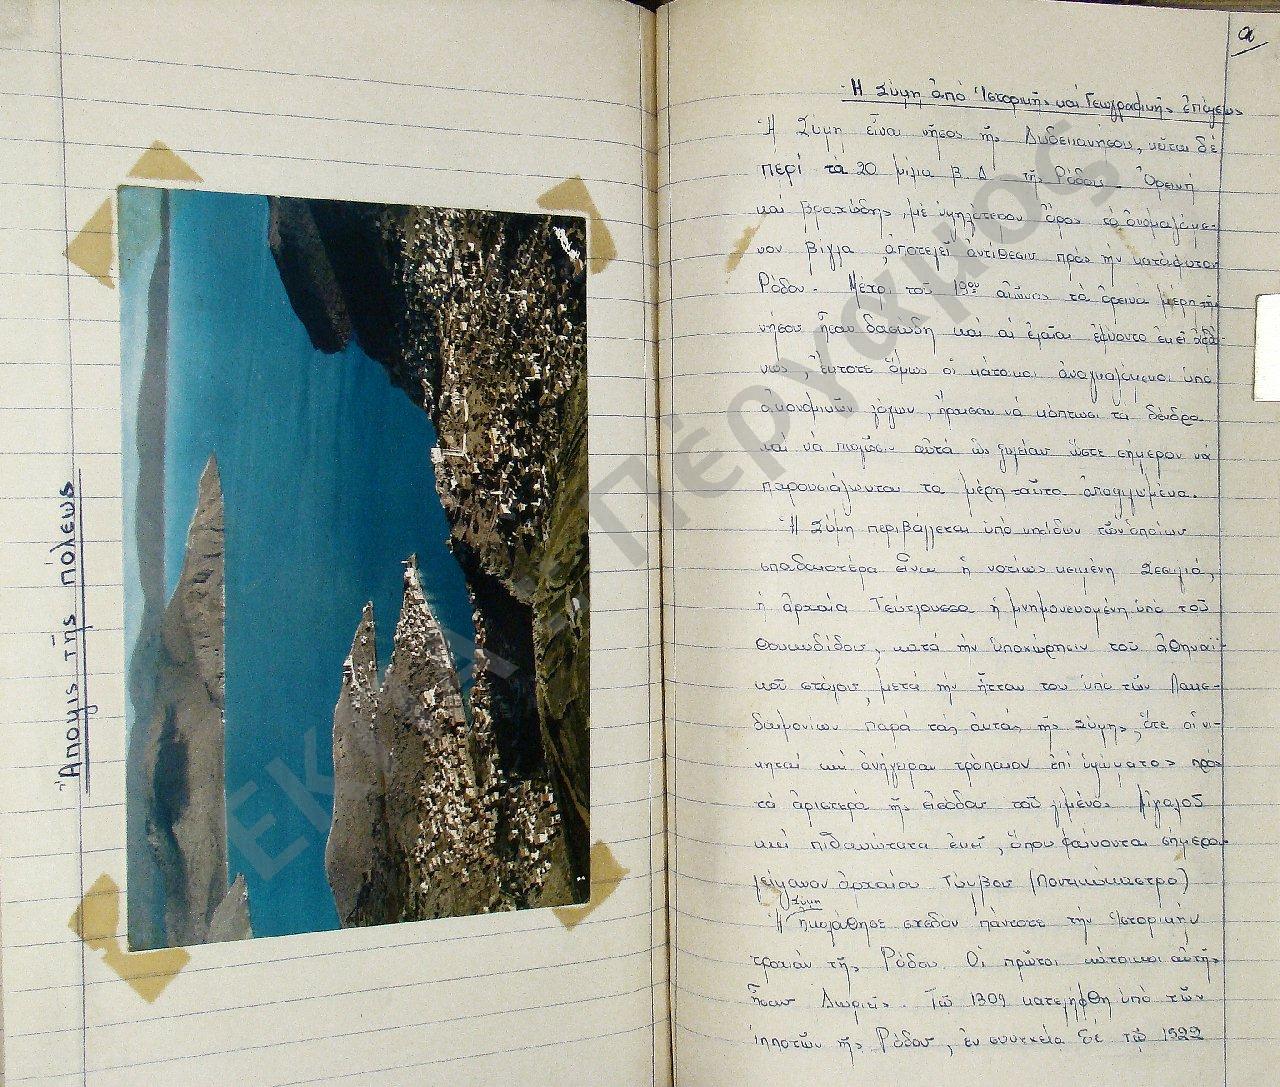 Ἄποψις τῆς πόλεως
α
Ἡ Σύμη ἀπό Ἱστορικῆς καί Γεωγραφικῆς ἐπόψεως
Ἡ Σύμη εἶναι νῆσος τῆς Δωδεκανήσου, κεῖται δέ
περί τά 20 μίλια Β.Δ τῆς Ρόδου. Ὀρεινή
καί βραχώδης, μέ ὑψηλότερον ὄρος τό ὀνομαζόμε-
νον Βίγλα, ἀποτελεῖ ἀντίθεσιν πρός τήν κατάφυτον
Ρόδον. Μέχρι τοῦ 19ου αἰῶνος τά ὀρεινά μέρη τῆς
νήσου ἦσαν δασώδη καί αἱ ἐλαῖαι ἐφύοντο ἐκεῖ
ἔκτοτε ὅμως οἱ κάτοικοι ἀναγκαζόμενοι ὑπό
οἰκονομικῶν λόγων, ἤρχισαν νά κόπτωσι τά δένδρα
καί νά πωλῶσιν αὐτά ὡς ξυλείαν ὥστε σήμερον νά
παρουσιάζωνται τά μέρη ταῦτα ἀποψιλωμένα.
Ἡ Σύμη περιβάλλεται ὑπό νησίδων τῶν ὁποίων
σπουδαιοτέρα εἶναι ἡ νοτίως κειμένη Σεσκλιά,
ἡ ἀρχαία Τεύτλουσσα ἡ μνημονευομένη ὑπό τοῦ
Θουκυδίδου, κατά τήν ὑποχώρησιν τοῦ ἀθηναϊ-
κοῦ στόλου, μετά τήν ἧτταν του ὑπό τῶν Λακε-
δαιμονίων παρά τάς ἀκτάς τῆς Σύμης, ὅτε οἱ νι-
κηταί καί ἀνήγειραν τρόπαιον ἐπί ὑψώματος πρός
τά ἀριστερά τῆς εἰσόδου τοῦ λιμένος Αἰγιαλοῦ
καί πιθανώτατα ἐκεῖ, ὅπου φαίνονται σήμερον
λείψανον ἀρχαίου Τύμβου (Ποντικόκαστρο)
Ἡ Σύμη ἠκολούθησε σχεδόν πάντοτε τήν Ἱστορικήν
τροχιάν τῆς Ρόδου. Οἱ πρῶτοι κάτοικοι αὐτῆς
ἦσαν Δωριεῖς. Τῷ 1309 κατελήφθη ὑπό τῶν
ἱπποτῶν τῆς Ρόδου, ἐν συνεχείᾳ δέ τῷ 1522
ΕΚΠΑ - Πέργαμος